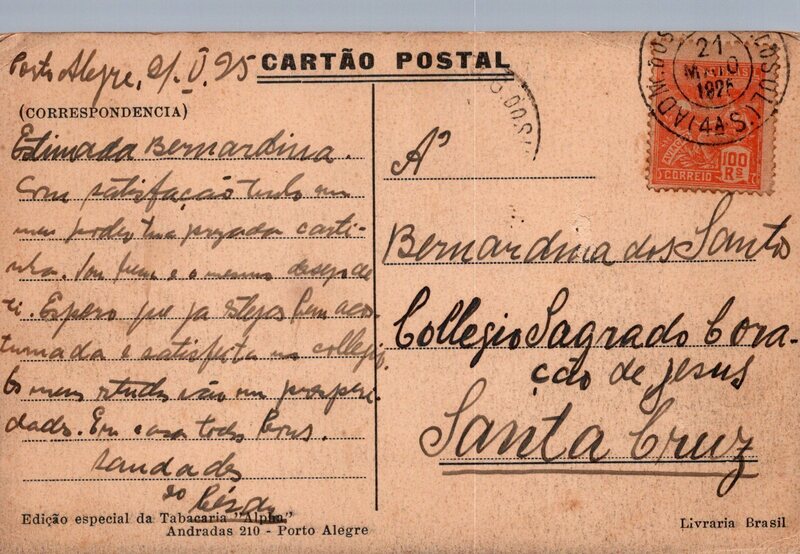 CARTÃO POSTAL
Porto Alegre, 21. V. 25
(CORRESPONDENCIA)
Estimada Bernardina.
Com satisfação tenho em
meu poder tua prezada carti-
nha. Vou bem e o mesmo desejo de
ti. Espero que ja estejas bem acos-
tumada e satisfeita no collegio.
Os meus estudos vão em prosperi-
dades. Em casa todos bons.
Saudades
do
Edição especial da Tabacaria "Alpha"
Andradas 210 - Porto Alegre
Aº
Bernardina dos Santos
Collegio Sagrado Cora-
ção de Jesus
Santa Cruz
Livraria Brasil
21
MAIO
(4ª S.)
100
Rs
CORREIO